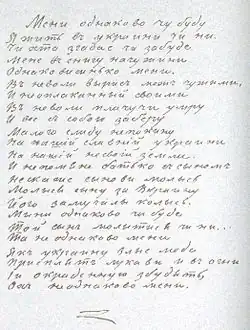 Мени однаково чу буду
Я жить въ украини чи ни.
Чи хто згадае чи забуде
Мене въ снигу на чужини
Однаковисинько мени.
Въ неволи вырисъ межъ чужими,
И неоплаканный своими
Въ неволи плачучи умру
И все съ собою заберу
Малого слиду непокину
На нашій славній украини
На нашій несвоій земли.
И непомяне батько съ сыномъ
Нескаже сынови молись
Молысь сыну за Вкраину
Його замучылы колысь.
Мини однаково чи буде
Той сынъ молитися чи ни...
Та не однаково мени
Якъ украину злые люде
Присплять лукави и въ огни
Ти окраденную збудять,
Охъ неоднаково мени.